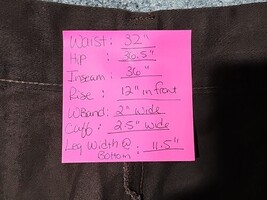 Waist: 32"
Hip : 36.5"
Inseam: 36"
Rise: 12" in front
WBand: 2" wide
Cuff: 2.5" wide
Leg Width @ : 11.5"
Bottom